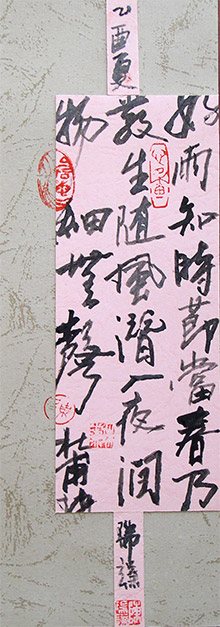 乙酉夏
好雨知時節當春乃
發生随風潛入夜潤
物細無聲 杜甫詩
瑞謙